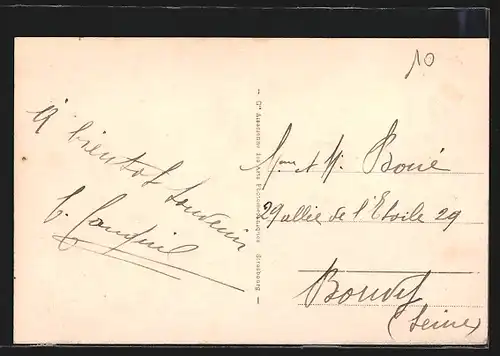 10
à bientot Souvenir
Cie Alsacienne des Arts Photomécaniques Strasbourg
Mme et M. Boué
29 allée de l'Etoile 29
(Seine)